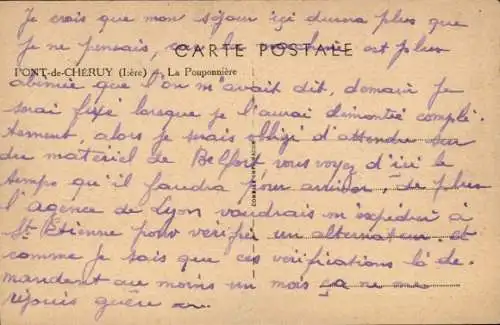 Je crois que mon séjour içi durera plus que
je ne pensais, car la machine est plus
CARTE POSTALE
PONT-de-CHÉRUY (Isère) - La Pouponnière
abimée que l'on m'avait dit, demain je
serai fixé lorsque je l'aurai démontée complè-
tement, alors je serais obligé d'attendre sur
du matériel de Belfort, vous voyez d'ici le
temps qu'il faudra pour arriver, de plus
l'agence de Lyon voudrais m'expédier à
St Etienne pour vérifier un alternateur et
comme je sais que ces vérifications là de-
mandent au moins un mois ça ne me
réjouis guère